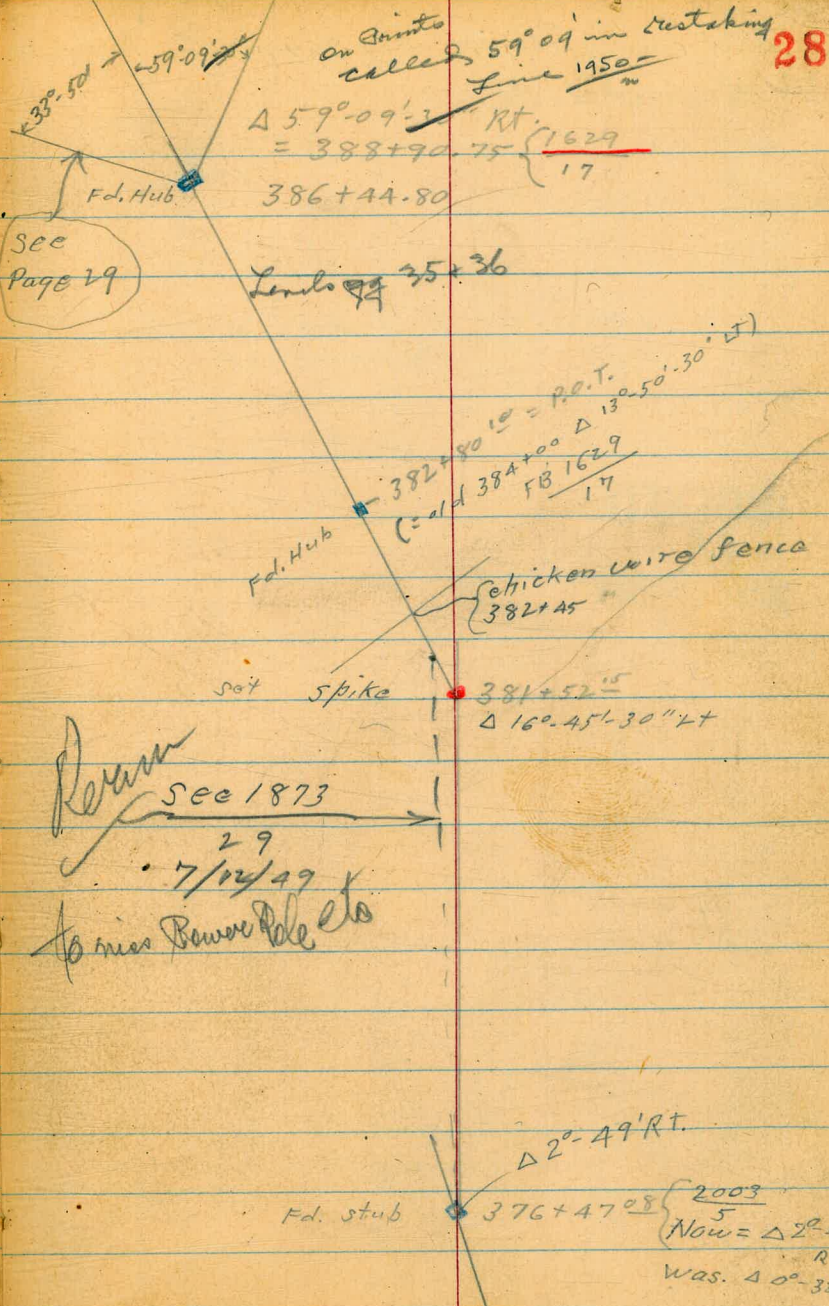 28
on Points
called 59°09' in restaking
Line 1950
33°-50'
59°-09'
Δ 59°-09'- Rt.
= 388+90.75 { 1629
17
Fd. Hub
386+44.80
See
Page 29
Levels pg 35+36
382+80 10 = P.O.T.
(= old 384+00 Δ 13°-50'-30" Lt)
FB 1629
17
Fd. Hub
{ chicken wire fence
382+45
set spike
381+52 .15
Δ 16°-45'-30" Lt
Reran
See 1873
29
7/12/49
to miss Power Pole etc
Δ 2°-49' Rt.
Fd. stub
376+47 08 { 2003
5
Now = Δ 2°-
R
Was. Δ 0°-3